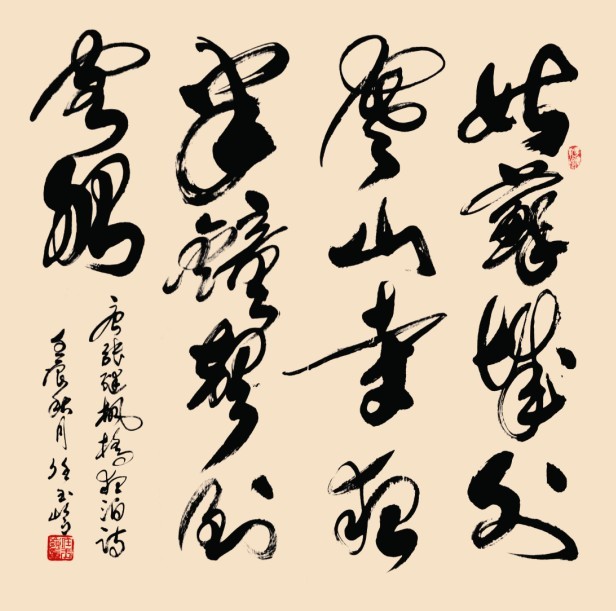 姑蘇城外
寒山寺夜
半鐘聲到
客船
唐張繼楓橋夜泊詩
壬辰秋月任玉岭